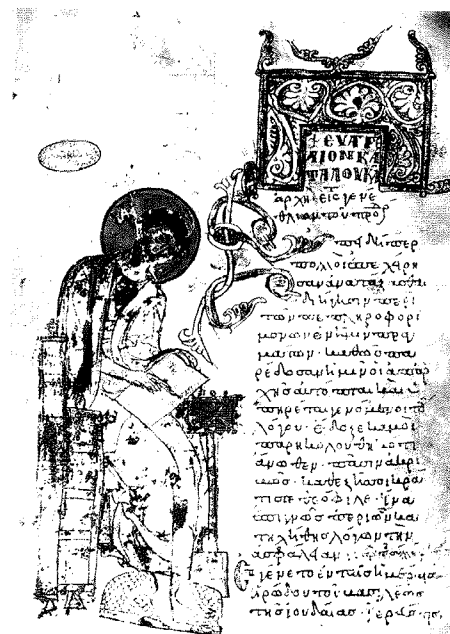 ΛΙΟΝ ΚΑ
ΤΑ ΛΟΥΚΑ
ἀρχὴ εἰς γενέ
θλιον τοῦ προδρ
πειδήπερ
πολλοὶ ἐπεχείρη
σαν ἀνατάξασθαι
διήγησιν περὶ
τῶν πεπληροφορη
μένων ἐν ἡμῖν πραγ
μάτων· καθὼς πα
ρέδοσαν ἡμῖν οἱ ἀπαρ
χῆς αὐτόπται καὶ ὑ
πηρέται γενόμενοι τοῦ
λόγου· ἔδοξε κἀμοὶ
παρηκολουθηκότι
ἄνωθεν πᾶσιν ἀκρι
βῶς· καθεξῆς σοι
τιστε θεόφιλε· ἵνα
ἐπιγνῷς περὶ ὧν κα
τηχήθης λόγων τὴν
ἀσφάλειαν
Ἐγένετο ἐν ταῖς ἡμέραις
ἡρώδου τοῦ βασιλέως
τῆς ἰουδαίας· ἱερεύς τις